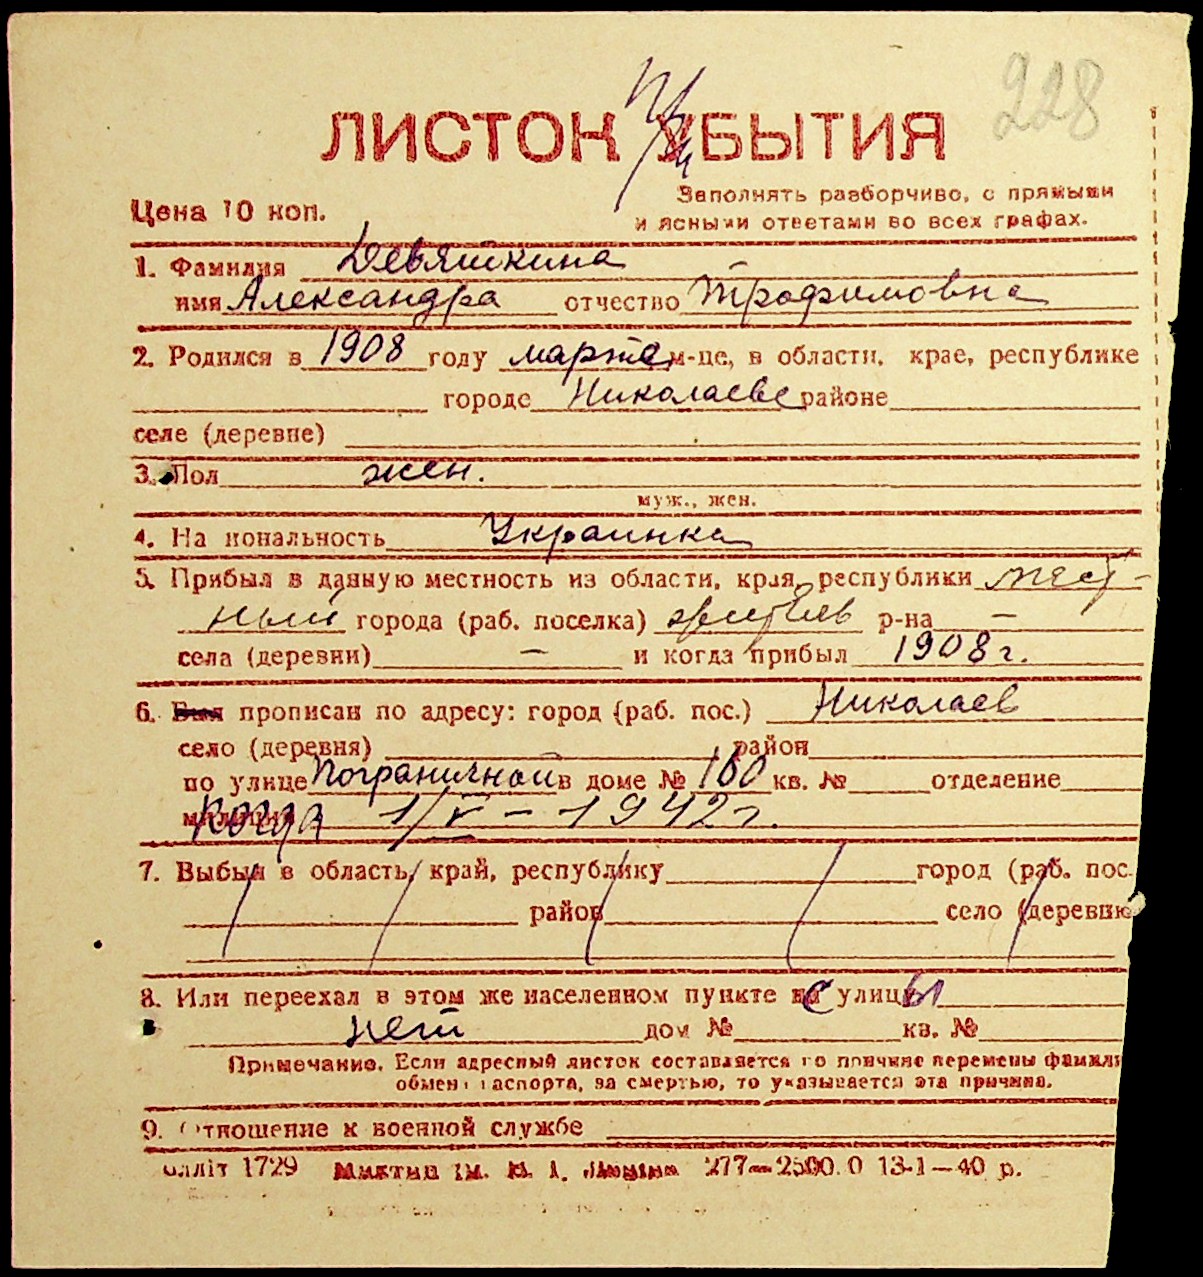 228
ЛИСТОК ПРИБЫТИЯ
Цена 10 коп.
Заполнять разборчиво, с прямыми
и ясными ответами во всех графах.
1. Фамилия Девяткина
имя Александра отчество Трофимовна
2. Родился в 1908 году марта м-це, в области, крае, республике
городе Николаеве районе
селе (деревне)
3. Пол жен.
муж., жен.
4. На иональность Украинка
5. Прибыл в данную местность из области, края, республики мест-
ный города (раб. поселка) житель р-на —
села (деревни) — и когда прибыл 1908 г.
6. Был прописан по адресу: город (раб. пос.) Николаев
село (деревня) район
по улице Пограничной в доме № 160 кв. № отделение
милиции когда 1/V – 1942 г.
7. Выбыл в область, край, республику город (раб. пос.
район село (деревню
8. Или переехал в этом же населенном пункте с улицы
нет дом № кв. №
Примечание. Если адресный листок составляется по причине перемены фамили
обмен паспорта, за смертью, то указывается эта причина.
9. Отношение к военной службе
блліт 1729 277—2500 0 13-1—40 р.